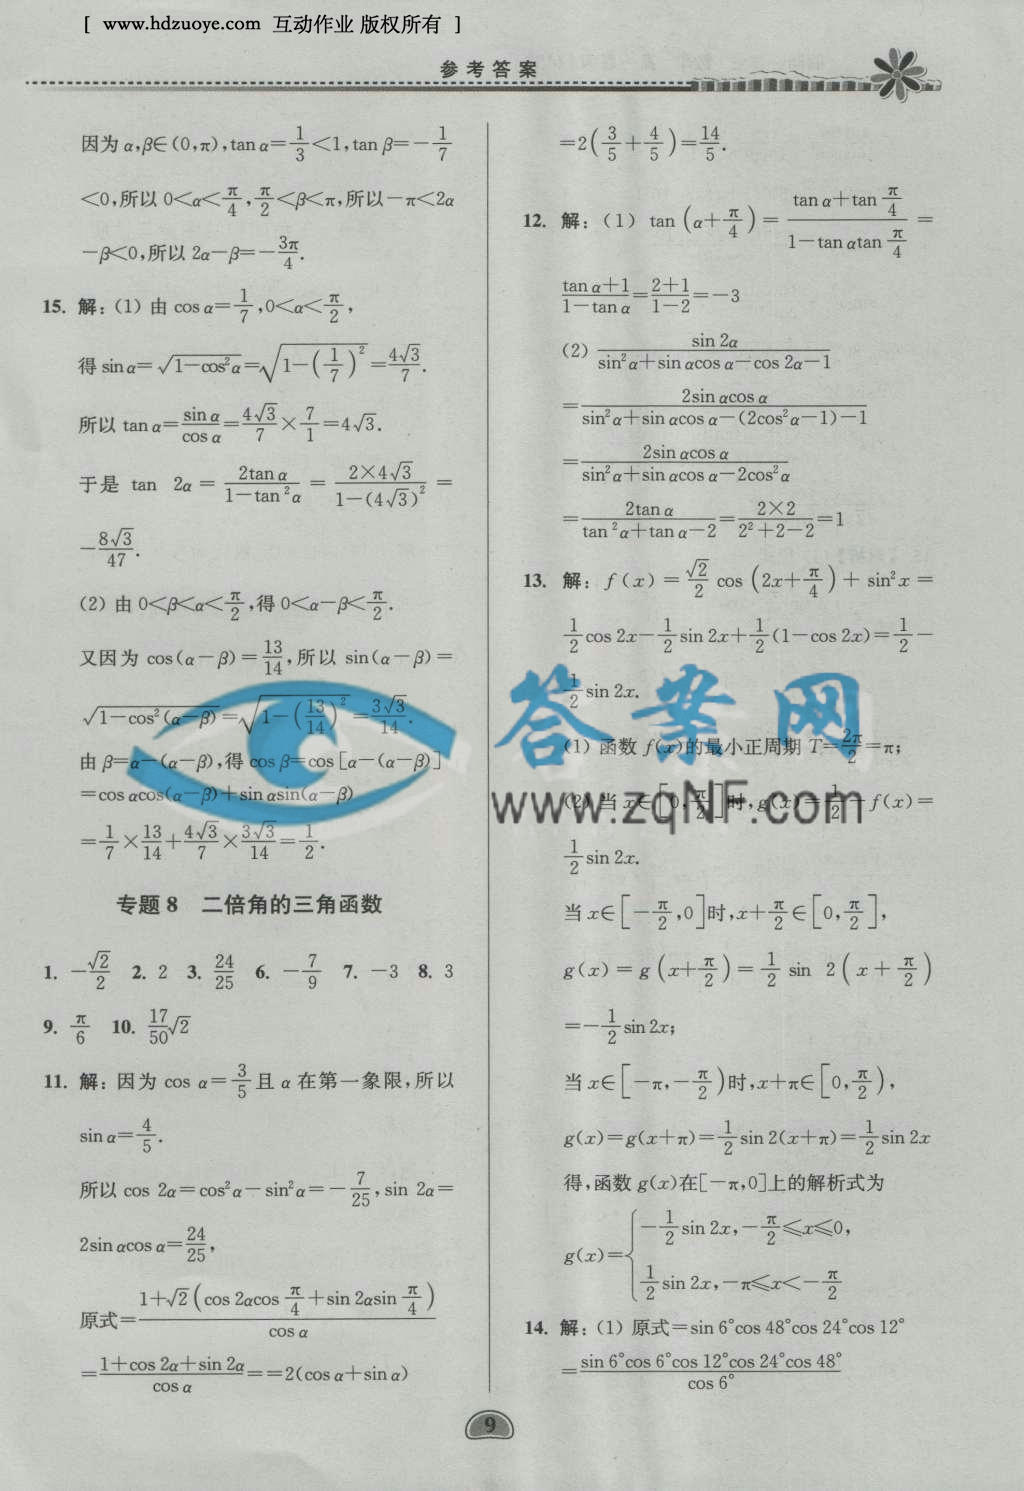 [ www.hdzuoye.com 互动作业 版权所有 ]
参考答案
因为 α,β∈(0,π),tan α=1/3<1,tan β=-1/7
<0,所以 0<α<π/4,π/2<β<π,所以-π<2α
-β<0,所以 2α-β=-3π/4.
15. 解:(1) 由 cos α=1/7,0<α<π/2,
得 sin α=√(1-cos²α)=√(1-(1/7)²)=4√3/7.
所以 tan α=sin α/cos α=4√3/7×7/1=4√3.
于是 tan 2α=2tan α/(1-tan²α)=2×4√3/(1-(4√3)²)=
-8√3/47.
(2) 由 0<β<α<π/2,得 0<α-β<π/2.
又因为 cos(α-β)=13/14,所以 sin(α-β)=
√(1-cos²(α-β))=√(1-(13/14)²)=3√3/14.
由 β=α-(α-β),得 cos β=cos[α-(α-β)]
=cos αcos(α-β)+sin αsin(α-β)
=1/7×13/14+4√3/7×3√3/14=1/2.
专题 8 二倍角的三角函数
1. -√2/2 2. 2 3. 24/25 6. -7/9 7. -3 8. 3
9. π/6 10. 17/50√2
11. 解:因为 cos α=3/5且 α 在第一象限,所以
sin α=4/5.
所以 cos 2α=cos²α-sin²α=-7/25,sin 2α=
2sin αcos α=24/25,
原式=(1+√2(cos 2αcos π/4+sin 2αsin π/4))/cos α
=(1+cos 2α+sin 2α)/cos α==2(cos α+sin α)
=2(3/5+4/5)=14/5.
12. 解:(1) tan(α+π/4)=(tan α+tan π/4)/(1-tan αtan π/4)=
(tan α+1)/(1-tan α)=(2+1)/(1-2)=-3
(2) sin 2α/(sin²α+sin αcos α-cos 2α-1)
=2sin αcos α/(sin²α+sin αcos α-(2cos²α-1)-1)
=2sin αcos α/(sin²α+sin αcos α-2cos²α)
=2tan α/(tan²α+tan α-2)=2×2/(2²+2-2)=1
13. 解:f(x)=√2/2 cos(2x+π/4)+sin²x=
1/2cos 2x-1/2sin 2x+1/2(1-cos 2x)=1/2-
1/2sin 2x.
答案网
(1) 函数 f(x)的最小正周期 T=2π/2=π;
www.zqNF.com
(2) 当 x∈[0,π/2]时,g(x)=1/2-f(x)=
1/2sin 2x.
当 x∈[-π/2,0]时,x+π/2∈[0,π/2],
g(x)=g(x+π/2)=1/2 sin 2(x+π/2)
=-1/2sin 2x;
当 x∈[-π,-π/2)时,x+π∈[0,π/2),
g(x)=g(x+π)=1/2sin 2(x+π)=1/2sin 2x
得,函数 g(x)在[-π,0]上的解析式为
g(x)={-1/2sin 2x,-π/2≤x≤0,
1/2sin 2x,-π≤x<-π/2
14. 解:(1) 原式=sin 6°cos 48°cos 24°cos 12°
=sin 6°cos 6°cos 12°cos 24°cos 48°/cos 6°
9